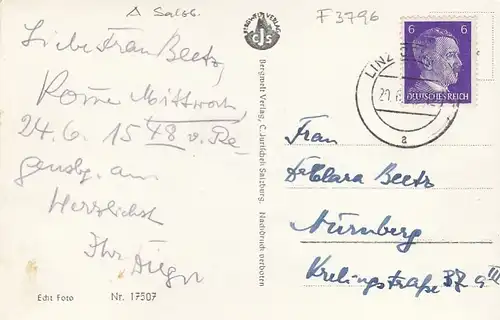 A Salzb.
F 3796
Liebe Frau Beetz,
Komme Mittwoch,
24.6. 15 48 v. Re-
gensbg. an.
Herzlichst
Ihr
BERGWELT VERLAG
CJS
Bergwelt Verlag, C. Jurischek Salzburg. Nachdruck verboten
6 6
DEUTSCHES REICH
LINZ
a
Frau
Dr Clara Beetz
Nürnberg
Krelingstraße 37 III
Echt Foto Nr. 17507